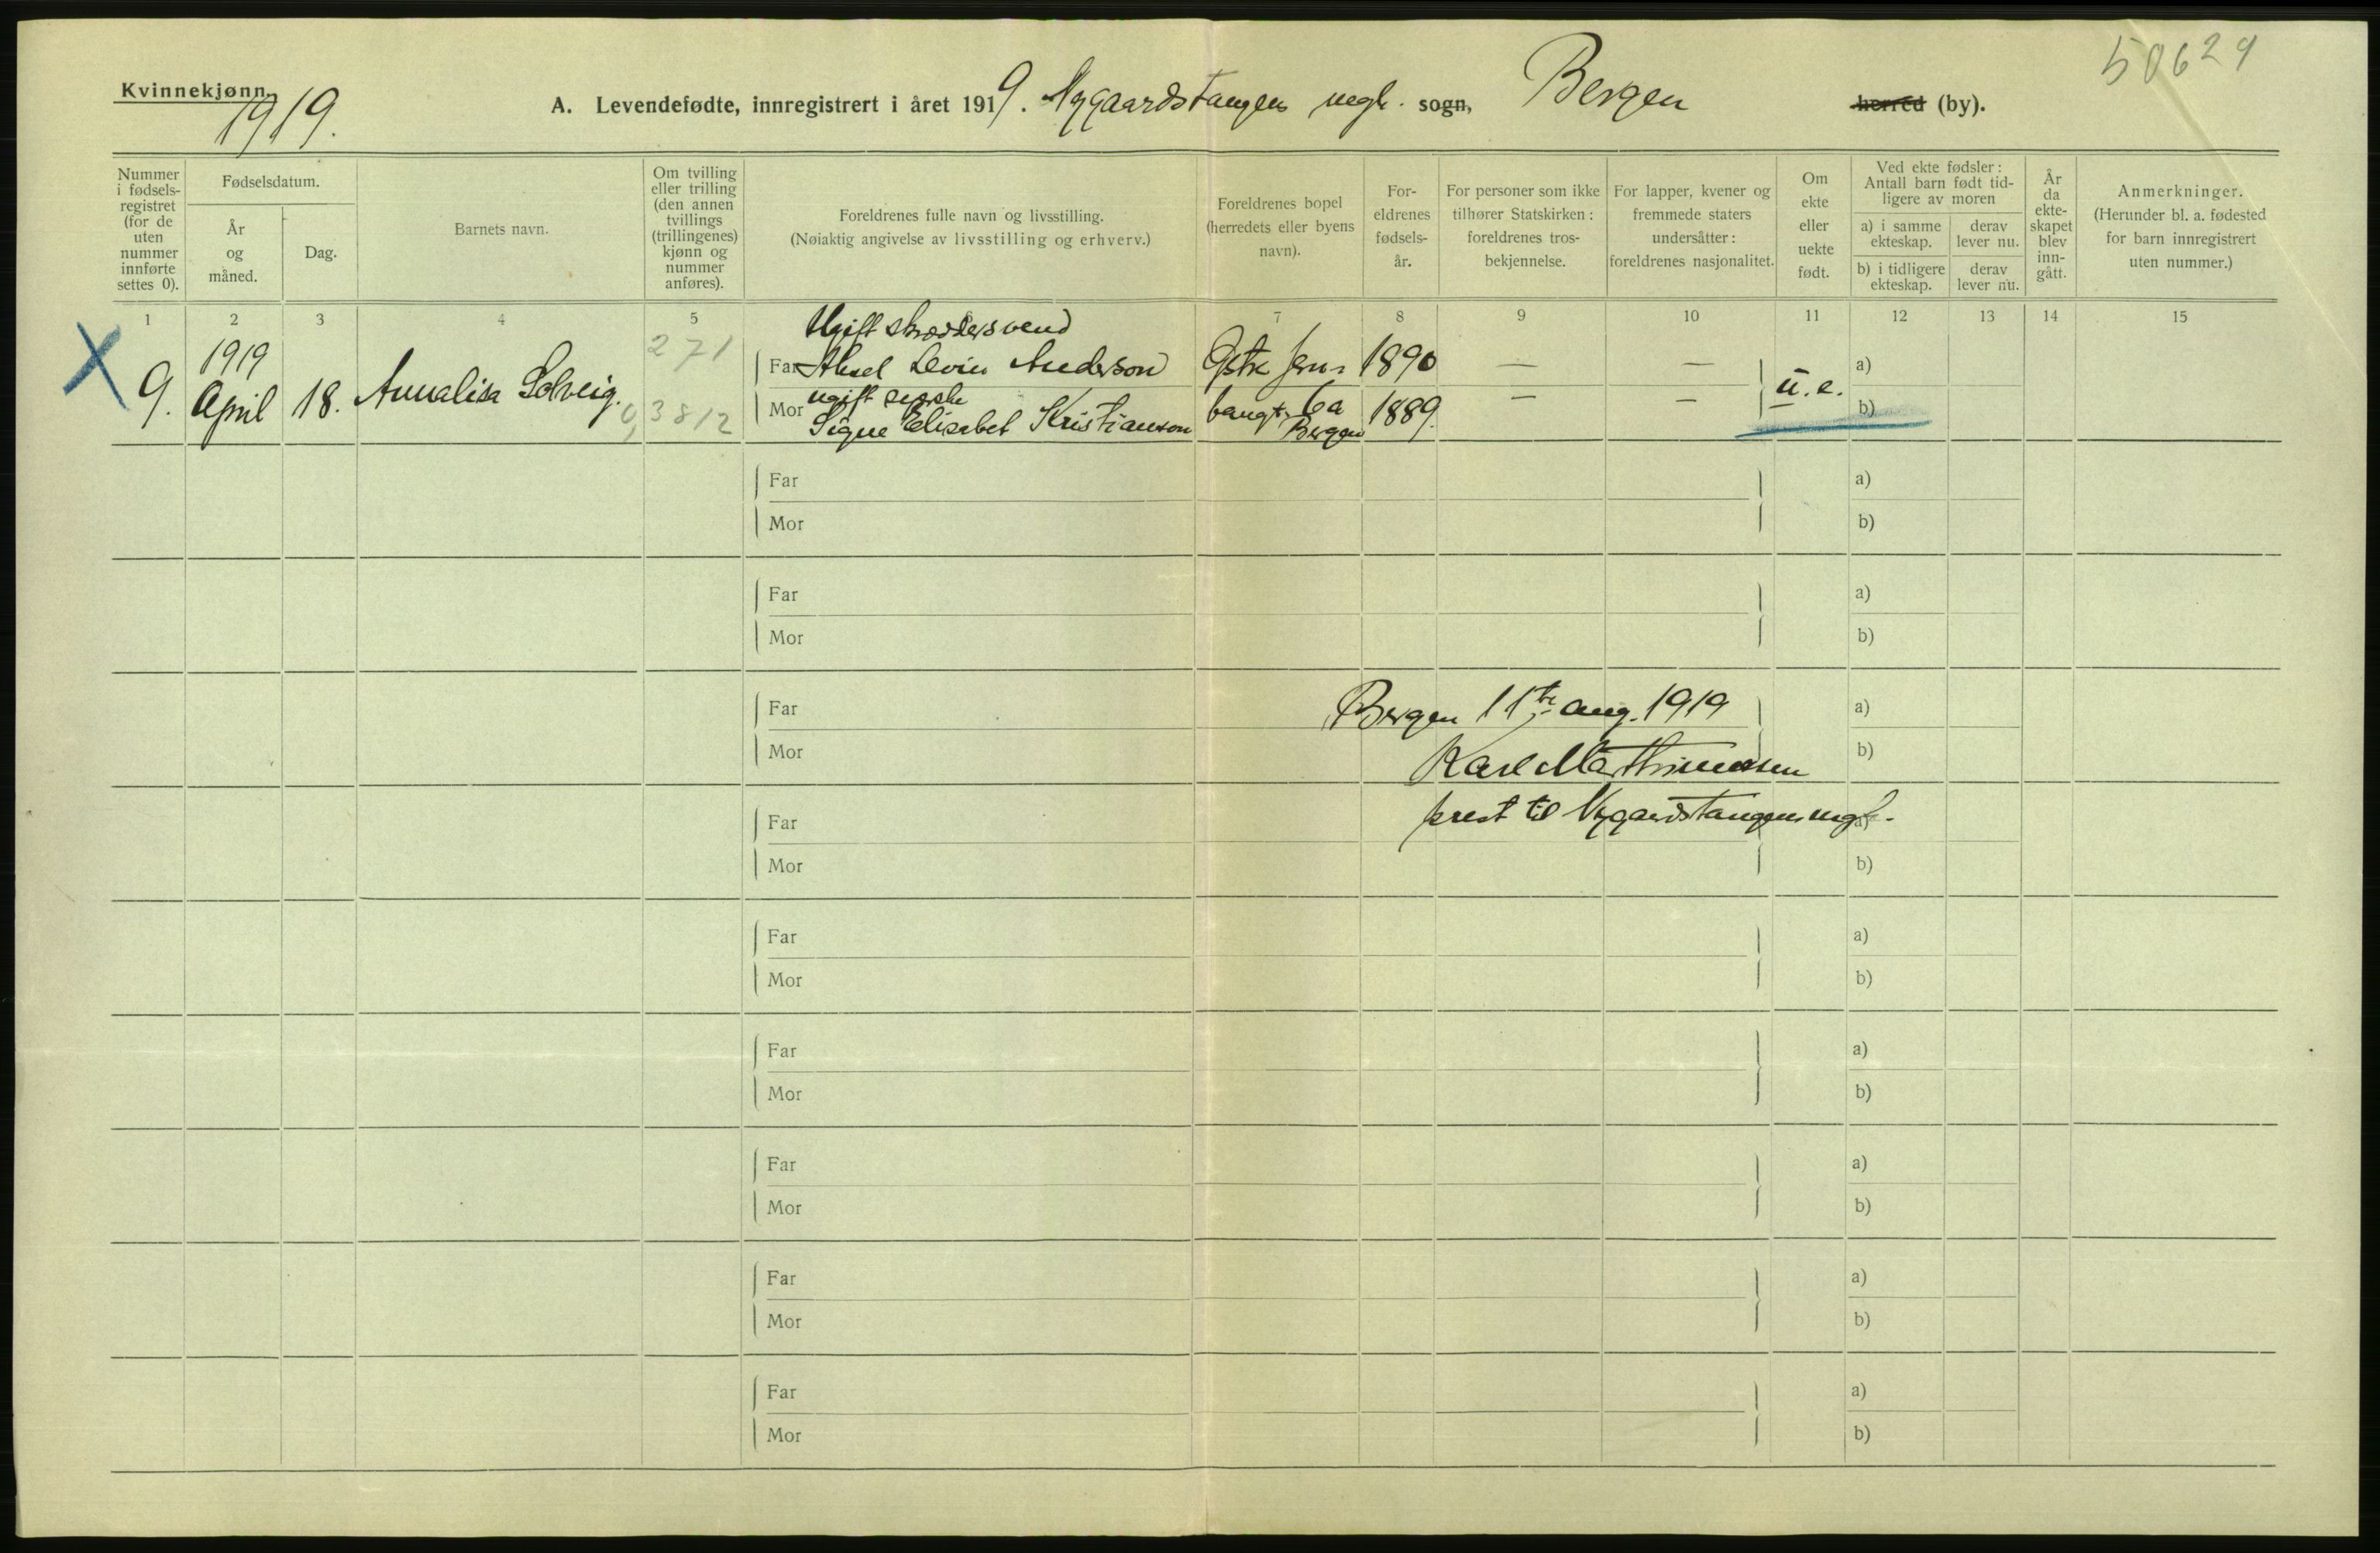 50629
Kvinnekjønn.
1919.
A. Levendefødte, innregistrert i året 1919. Nygaardstangens megh. sogn, Bergen herred (by).
Nummer i fødsels-registret (for de uten nummer innførte settes 0).
Fødselsdatum.
År og måned.
Dag.
Barnets navn.
Om tvilling eller trilling (den annen tvillings (trillingenes) kjønn og nummer anføres).
Foreldrenes fulle navn og livsstilling.
(Nøiaktig angivelse av livsstilling og erhverv.)
Foreldrenes bopel (herredets eller byens navn).
For-eldrenes fødsels-år.
For personer som ikke tilhører Statskirken: foreldrenes tros-bekjennelse.
For lapper, kvener og fremmede staters undersåtter: foreldrenes nasjonalitet.
Om ekte eller uekte født.
Ved ekte fødsler: Antall barn født tid-ligere av moren
a) i samme ekteskap.
derav lever nu.
b) i tidligere ekteskap.
derav lever nu.
År da ekte-skapet blev inn-gått.
Anmerkninger.
(Herunder bl. a. fødested for barn innregistrert uten nummer.)
1 2 3 4 5 7 8 9 10 11 12 13 14 15
Ugift skræddersvend
X 9. 1919 April 18. Annalisa Solveig. 271 0,3812
Far Aksel Levin Anderson Østre Jern- 1890 — — u.e. a)
ugift
Mor Signe Elisabet Kristianson bangt. 6a Bergen 1889. — — b)
Far a)
Mor b)
Far a)
Mor b)
Far Bergen 11te aug. 1919 a)
Mor Karl Marthinussen b)
Far prest til Nygaardstangens megh. a)
Mor b)
Far a)
Mor b)
Far a)
Mor b)
Far a)
Mor b)
Far a)
Mor b)
Far a)
Mor b)